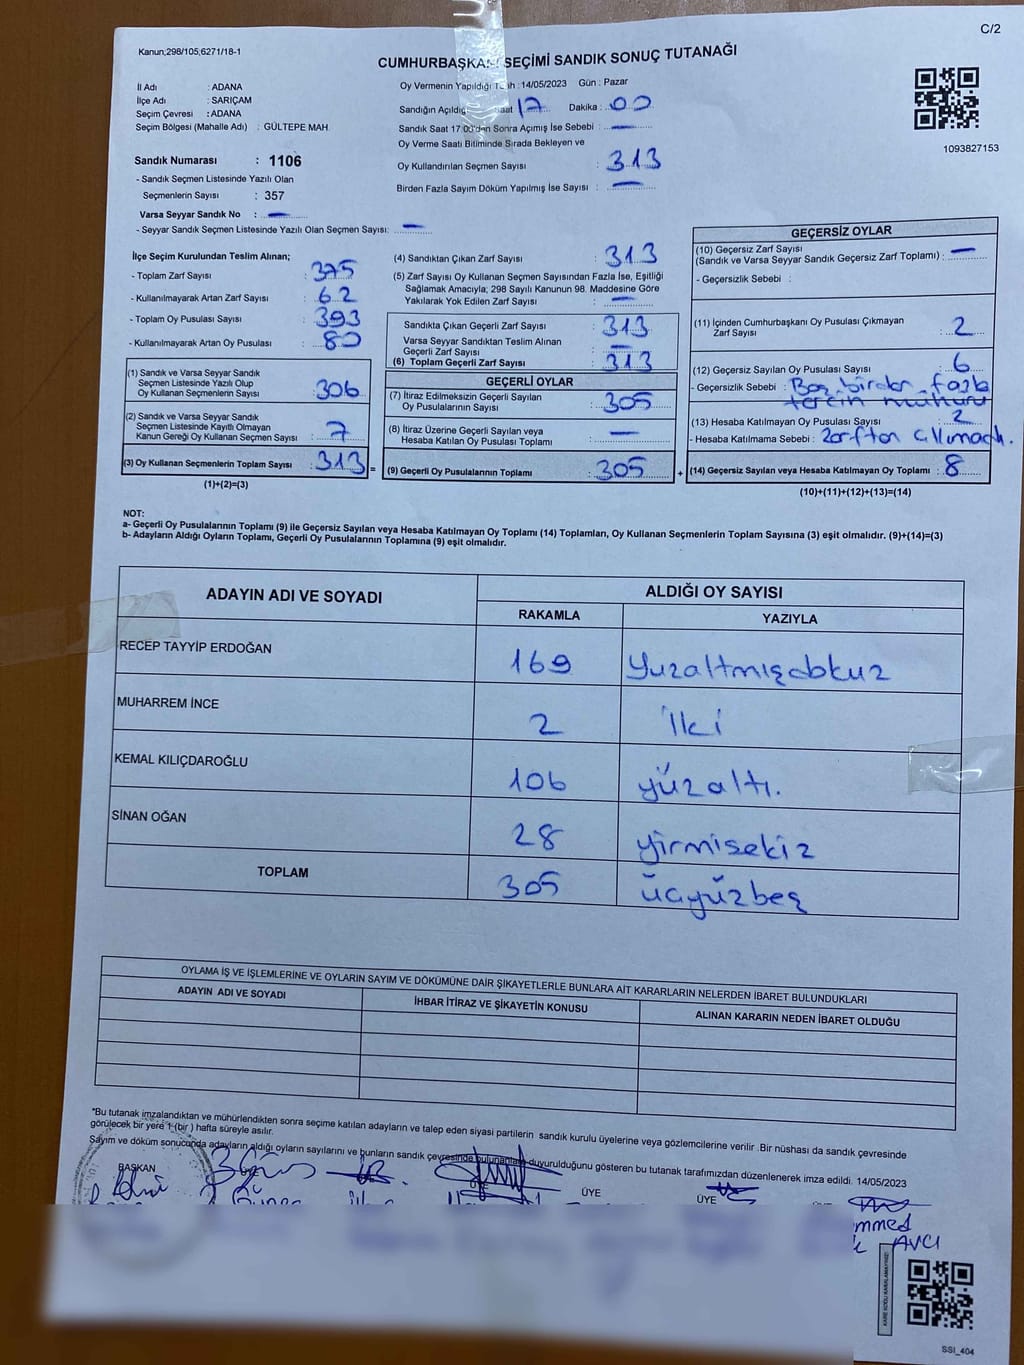 C/2
Kanun;298/105;6271/18-1
CUMHURBAŞKANI SEÇİMİ SANDIK SONUÇ TUTANAĞI
İl Adı : ADANA
İlçe Adı : SARIÇAM
Seçim Çevresi : ADANA
Seçim Bölgesi (Mahalle Adı) : GÜLTEPE MAH.
Oy Vermenin Yapıldığı Tarih : 14/05/2023 Gün : Pazar
Sandığın Açıldığı Saat 17 Dakika : 00
Sandık Saat 17:00'den Sonra Açımış İse Sebebi : —
Oy Verme Saati Bitiminde Sırada Bekleyen ve
Oy Kullandırılan Seçmen Sayısı : 313
Birden Fazla Sayım Döküm Yapılmış İse Sayısı : —
1093827153
Sandık Numarası : 1106
- Sandık Seçmen Listesinde Yazılı Olan
Seçmenlerin Sayısı : 357
Varsa Seyyar Sandık No : —
- Seyyar Sandık Seçmen Listesinde Yazılı Olan Seçmen Sayısı: —
İlçe Seçim Kurulundan Teslim Alınan;
- Toplam Zarf Sayısı : 375
- Kullanılmayarak Artan Zarf Sayısı : 62
- Toplam Oy Pusulası Sayısı : 393
- Kullanılmayarak Artan Oy Pusulası : 80
(1) Sandık ve Varsa Seyyar Sandık
Seçmen Listesinde Yazılı Olup
Oy Kullanan Seçmenlerin Sayısı : 306
(2) Sandık ve Varsa Seyyar Sandık
Seçmen Listesinde Kayıtlı Olmayan
Kanun Gereği Oy Kullanan Seçmen Sayısı : 7
(3) Oy Kullanan Seçmenlerin Toplam Sayısı : 313 =
(1)+(2)=(3)
(4) Sandıktan Çıkan Zarf Sayısı : 313
(5) Zarf Sayısı Oy Kullanan Seçmen Sayısından Fazla İse, Eşitliği
Sağlamak Amacıyla; 298 Sayılı Kanunun 98. Maddesine Göre
Yakılarak Yok Edilen Zarf Sayısı : —
Sandıkta Çıkan Geçerli Zarf Sayısı : 313
Varsa Seyyar Sandıktan Teslim Alınan
Geçerli Zarf Sayısı : —
(6) Toplam Geçerli Zarf Sayısı : 313
GEÇERLİ OYLAR
(7) İtiraz Edilmeksizin Geçerli Sayılan
Oy Pusulalarının Sayısı : 305
(8) İtiraz Üzerine Geçerli Sayılan veya
Hesaba Katılan Oy Pusulası Toplamı : —
(9) Geçerli Oy Pusulalarının Toplamı : 305 +
GEÇERSİZ OYLAR
(10) Geçersiz Zarf Sayısı
(Sandık ve Varsa Seyyar Sandık Geçersiz Zarf Toplamı) : —
- Geçersizlik Sebebi :
(11) İçinden Cumhurbaşkanı Oy Pusulası Çıkmayan
Zarf Sayısı : 2
(12) Geçersiz Sayılan Oy Pusulası Sayısı : 6
- Geçersizlik Sebebi : Boş, birden fazla
tercih mühürü
(13) Hesaba Katılmayan Oy Pusulası Sayısı : 2
- Hesaba Katılmama Sebebi : Zarftan çıkmadı.
(14) Geçersiz Sayılan veya Hesaba Katılmayan Oy Toplamı : 8
(10)+(11)+(12)+(13)=(14)
NOT:
a- Geçerli Oy Pusulalarının Toplamı (9) ile Geçersiz Sayılan veya Hesaba Katılmayan Oy Toplamı (14) Toplamları, Oy Kullanan Seçmenlerin Toplam Sayısına (3) eşit olmalıdır. (9)+(14)=(3)
b- Adayların Aldığı Oyların Toplamı, Geçerli Oy Pusulalarının Toplamına (9) eşit olmalıdır.
ADAYIN ADI VE SOYADI
ALDIĞI OY SAYISI
RAKAMLA YAZIYLA
RECEP TAYYİP ERDOĞAN 169 Yüzaltmışdokuz
MUHARREM İNCE 2 İki
KEMAL KILIÇDAROĞLU 106 yüzaltı.
SİNAN OĞAN 28 yirmisekiz
TOPLAM 305 üçyüzbeş
OYLAMA İŞ VE İŞLEMLERİNE VE OYLARIN SAYIM VE DÖKÜMÜNE DAİR ŞİKAYETLERLE BUNLARA AİT KARARLARIN NELERDEN İBARET BULUNDUKLARI
ADAYIN ADI VE SOYADI İHBAR İTİRAZ VE ŞİKAYETİN KONUSU ALINAN KARARIN NEDEN İBARET OLDUĞU
*Bu tutanak imzalandıktan ve mühürlendikten sonra seçime katılan adayların ve talep eden siyasi partilerin sandık kurulu üyelerine veya gözlemcilerine verilir. Bir nüshası da sandık çevresinde
görülecek bir yere 1 (bir) hafta süreyle asılır.
Sayım ve döküm sonucunda adayların aldığı oyların sayılarını ve bunların sandık çevresinde bulunanlara duyurulduğunu gösteren bu tutanak tarafımızdan düzenlenerek imza edildi. 14/05/2023
BAŞKAN ÜYE ÜYE
mmed
AVCI
SSİ_404